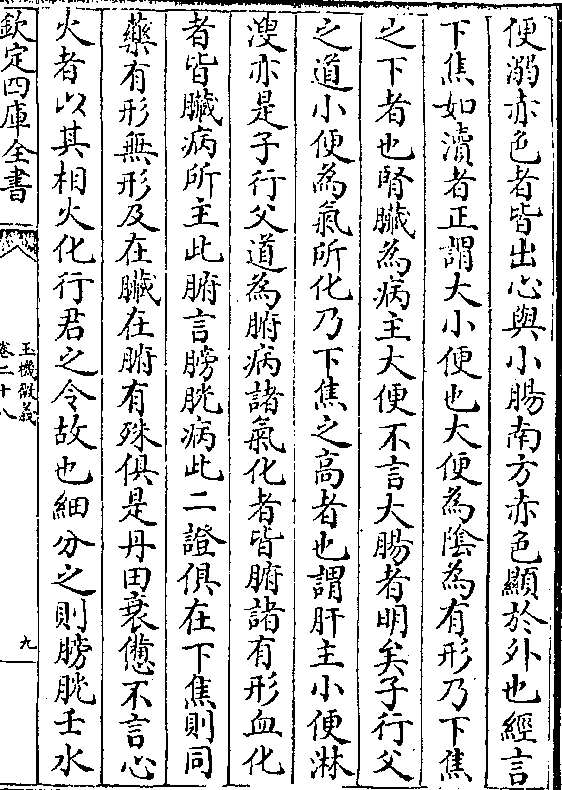 便溺赤色者皆出心與小腸南方赤色顯於外也經言
下焦如瀆者正謂大小便也大便為陰為有形乃下焦
之下者也腎臟為病主大便不言大腸者明矣子行父
之道小便為氣所化乃下焦之高者也謂肝主小便淋
溲亦是子行父道為腑病諸氣化者皆腑諸有形血化
者皆臟病所主此腑言膀胱病此二證俱在下焦則同
藥有形無形及在臟在腑有殊俱是丹田衰憊不言心
火者以其相火化行君之令故也細分之則膀胱壬水
欽定四庫全書
玉機微義
卷二十八
九